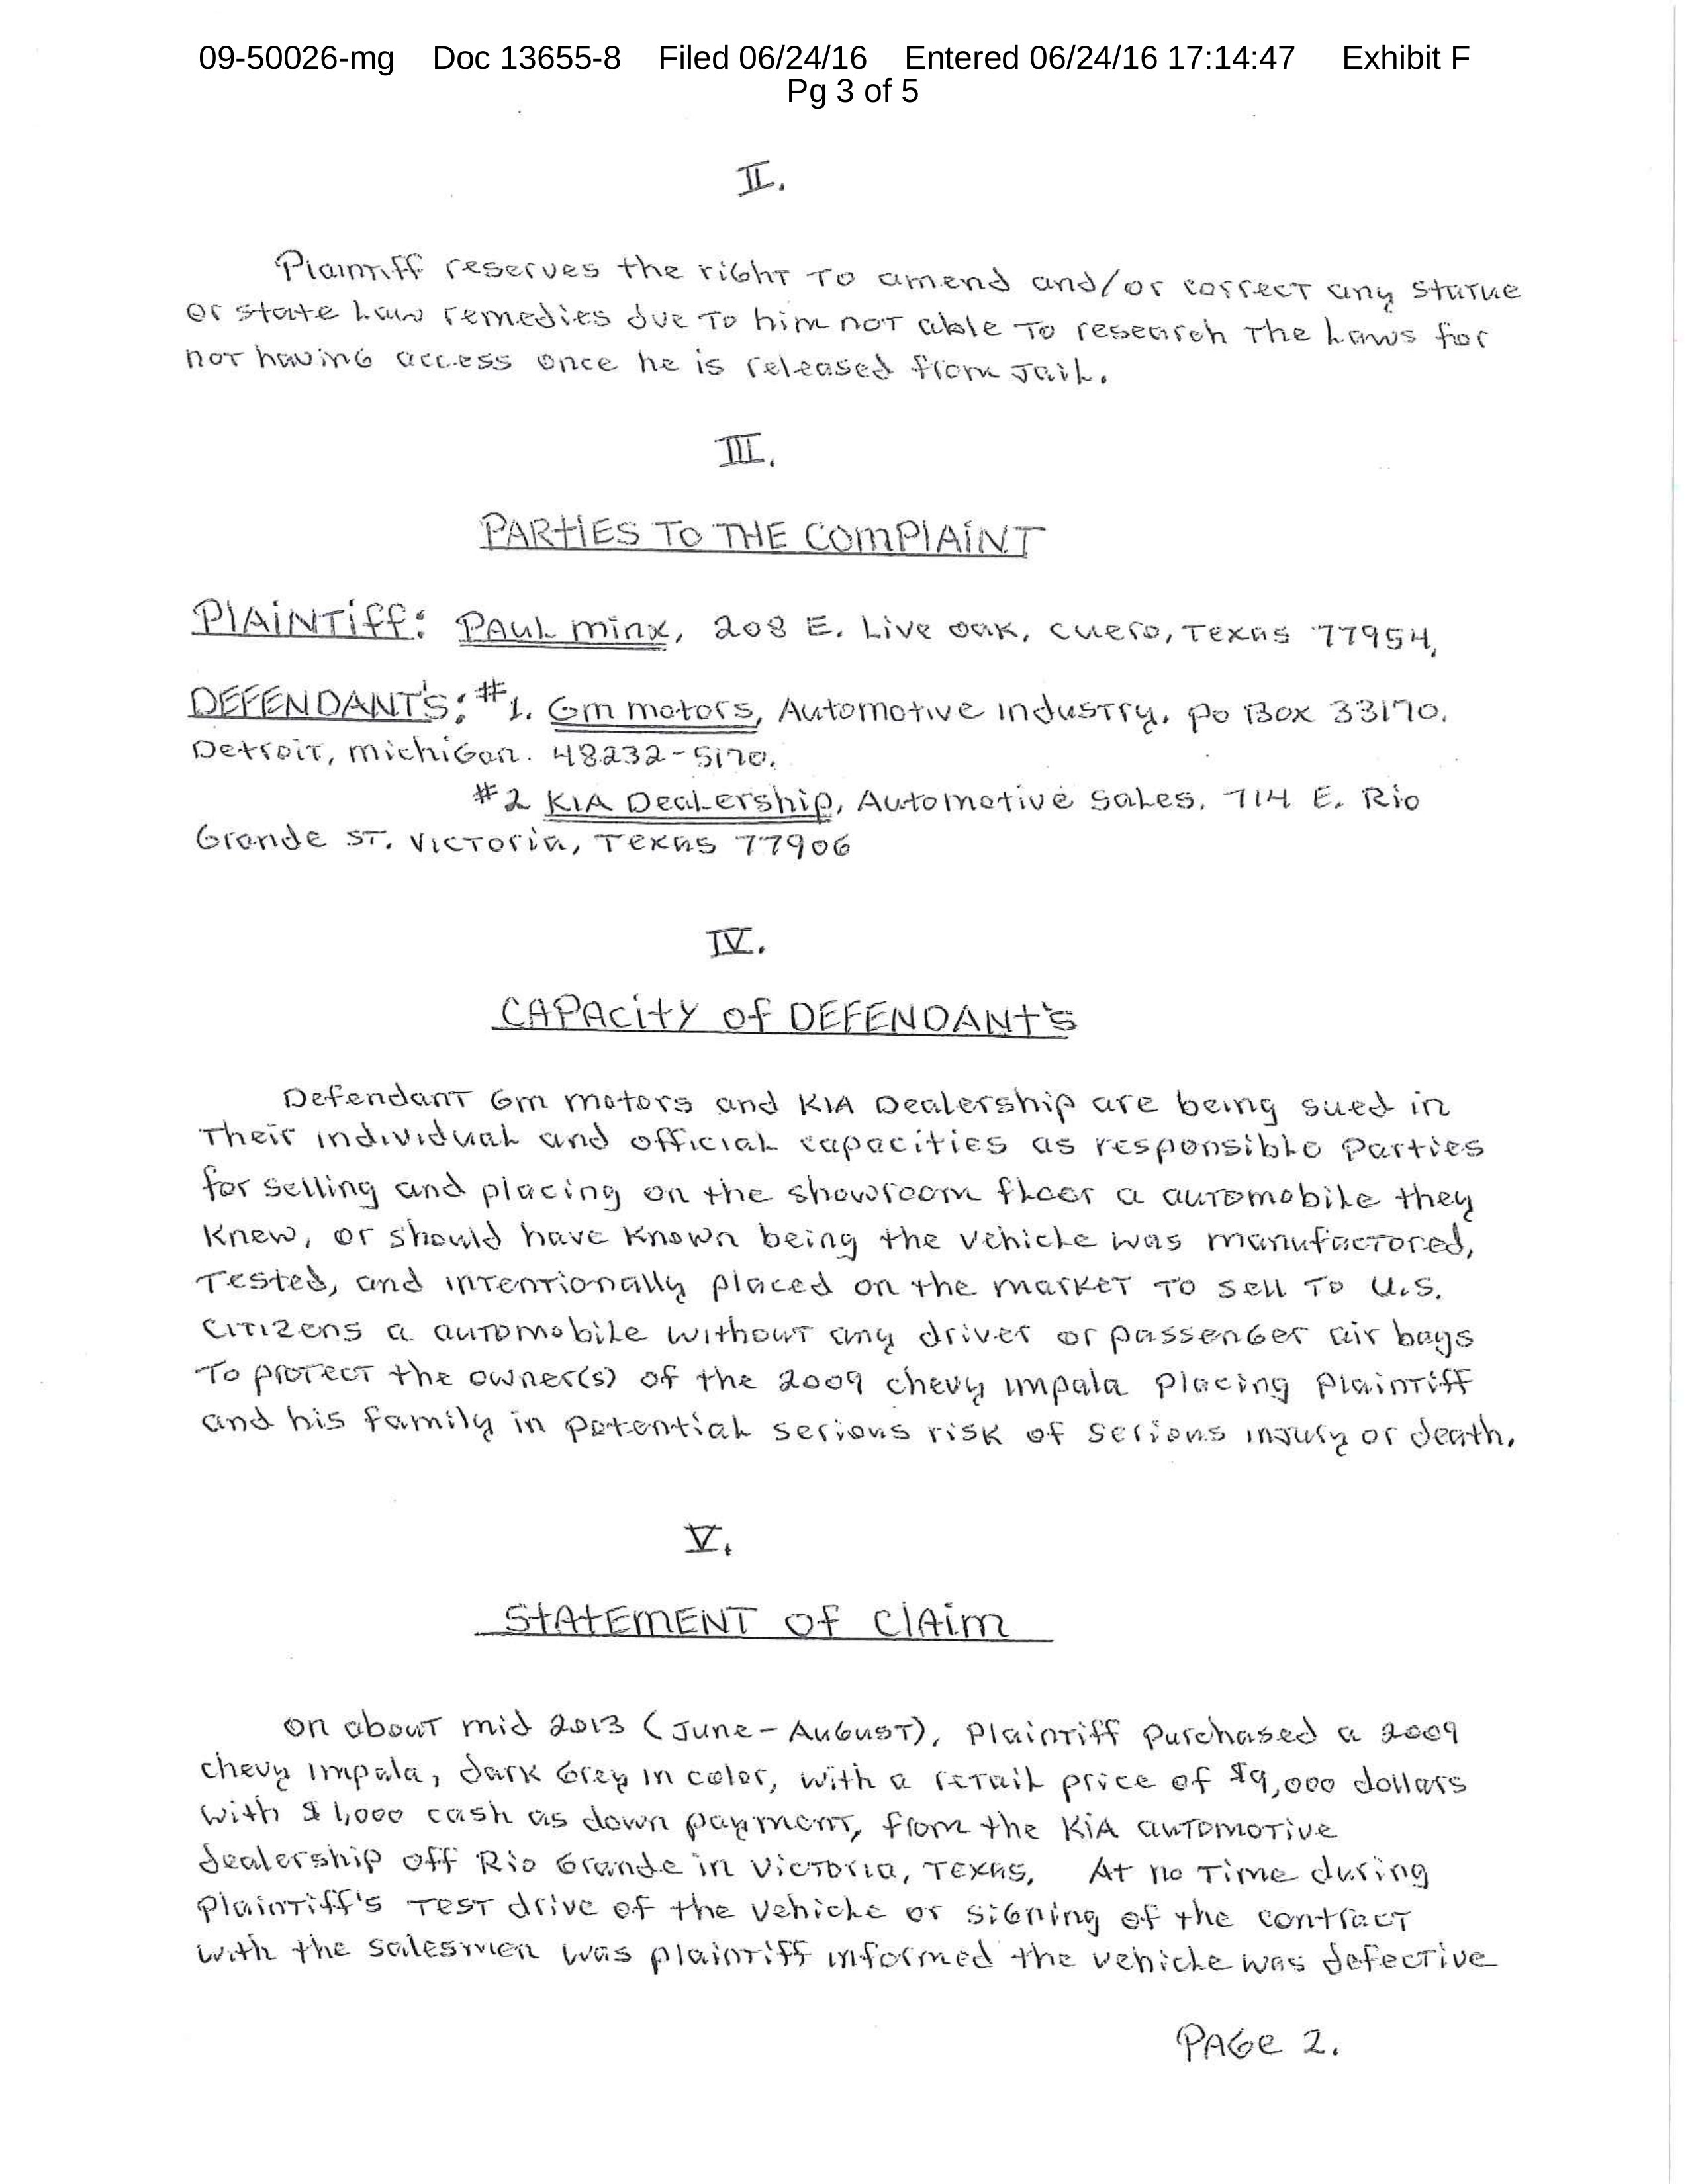 09-50026-mg Doc 13655-8 Filed 06/24/16 Entered 06/24/16 17:14:47 Exhibit F
Pg 3 of 5
II.
Plaintiff reserves the right to amend and/or correct any statue
or state law remedies due to him not able to research the laws for
not having access once he is released from jail.
III.
PARTIES TO THE COMPLAINT
PLAINTIFF: PAUL MINX, 208 E. Live Oak, Cuero, Texas 77954,
DEFENDANT'S: #1. GM motors, Automotive industry. PO Box 33170.
Detroit, Michigan. 48232-5170.
#2 KIA Dealership, Automotive Sales. 714 E. Rio
Grande ST. Victoria, Texas 77906
IV.
CAPACITY OF DEFENDANT'S
Defendant GM motors and KIA Dealership are being sued in
their individual and official capacities as responsible parties
for selling and placing on the showroom floor a automobile they
knew, or should have known being the vehicle was manufactored,
tested, and intentionally placed on the market to sell to U.S.
citizens a automobile without any driver or passenger air bags
to protect the owner(s) of the 2009 chevy impala placing plaintiff
and his family in potential serious risk of serious injury or death.
V.
STATEMENT OF CLAIM
on about mid 2013 (June-August), Plaintiff purchased a 2009
chevy impala, dark grey in color, with a retail price of $9,000 dollars
with $1,000 cash as down payment, from the KIA automotive
dealership off Rio Grande in Victoria, Texas. At no time during
plaintiff's test drive of the vehicle or signing of the contract
with the salesmen was plaintiff informed the vehicle was defective
PAGE 2.